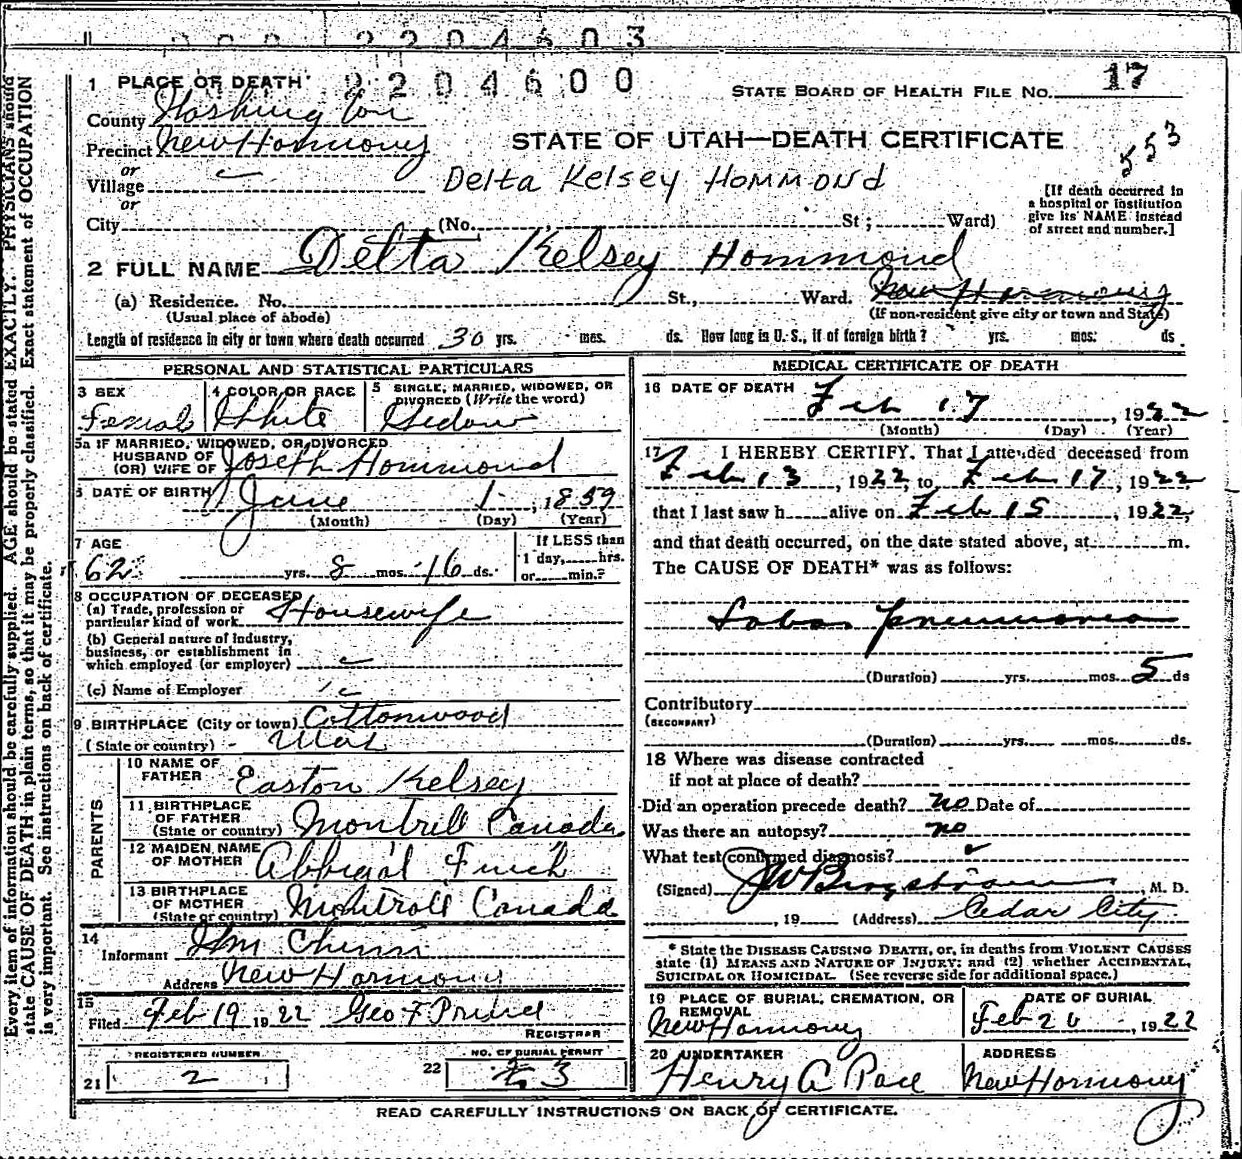 2204603
2204600
17
1 PLACE OF DEATH
STATE BOARD OF HEALTH FILE No.
County Washington
Precinct New Harmony
STATE OF UTAH—DEATH CERTIFICATE
553
or
Village
Delta Kelsey HOMMOND
or
City (No. St; Ward)
[If death occurred in
a hospital or institution
give its NAME instead
of street and number.]
2 FULL NAME Delta Kelsey Hommond
(a) Residence. No. St., Ward. New Harmony
(Usual place of abode) (If non-resident give city or town and State)
Length of residence in city or town where death occurred 30 yrs. mes. ds. How long in U. S., if of foreign birth? yrs. mos. ds.
PERSONAL AND STATISTICAL PARTICULARS
3 SEX 4 COLOR OR RACE 5 SINGLE, MARRIED, WIDOWED, OR
DIVORCED (Write the word)
Female White Widow
5a IF MARRIED, WIDOWED, OR DIVORCED
HUSBAND OF
(OR) WIFE OF Joseph Hommond
6 DATE OF BIRTH June 1, 1859
(Month) (Day) (Year)
7 AGE If LESS than
62 yrs. 8 mos. 16 ds. 1 day, hrs.
or min.?
8 OCCUPATION OF DECEASED
(a) Trade, profession or
particular kind of work Housewife
(b) General nature of industry,
business, or establishment in
which employed (or employer)
(c) Name of Employer
9 BIRTHPLACE (City or town) Cottonwood
(State or country) Utah
PARENTS
10 NAME OF
FATHER Easton Kelsey
11 BIRTHPLACE
OF FATHER
(State or country) Montrill Canada
12 MAIDEN NAME
OF MOTHER Abbigal Finch
13 BIRTHPLACE
OF MOTHER
(State or country) Montroll Canada
14
Informant Wm
Address New Harmony
15
Filed Feb 19 1922 Geo F Prince
REGISTRAR
REGISTERED NUMBER NO. OF BURIAL PERMIT
21 2 22 3
MEDICAL CERTIFICATE OF DEATH
16 DATE OF DEATH Feb 17, 1922
(Month) (Day) (Year)
17 I HEREBY CERTIFY, That I attended deceased from
Feb 13, 1922, to Feb 17, 1922
that I last saw h alive on Feb 15, 1922,
and that death occurred, on the date stated above, at m.
The CAUSE OF DEATH* was as follows:
Lobar pneumonia
(Duration) yrs. mos. 5 ds
Contributory
(SECONDARY)
(Duration) yrs. mos. ds.
18 Where was disease contracted
if not at place of death?
Did an operation precede death? no Date of
Was there an autopsy? no
What test confirmed diagnosis?
(Signed) JW Bergstrom, M. D.
, 19 (Address) Cedar City
* State the DISEASE CAUSING DEATH, or, in deaths from VIOLENT CAUSES
state (1) MEANS AND NATURE OF INJURY; and (2) whether ACCIDENTAL,
SUICIDAL OR HOMICIDAL. (See reverse side for additional space.)
19 PLACE OF BURIAL, CREMATION, OR
REMOVAL
New Harmony
DATE OF BURIAL
Feb 20, 1922
20 UNDERTAKER
Henry A Pace
ADDRESS
New Harmony
READ CAREFULLY INSTRUCTIONS ON BACK OF CERTIFICATE.
Every item of information should be carefully supplied. AGE should be stated EXACTLY. PHYSICIANS should
state CAUSE OF DEATH in plain terms, so that it may be properly classified. Exact statement of OCCUPATION
is very important. See instructions on back of certificate.